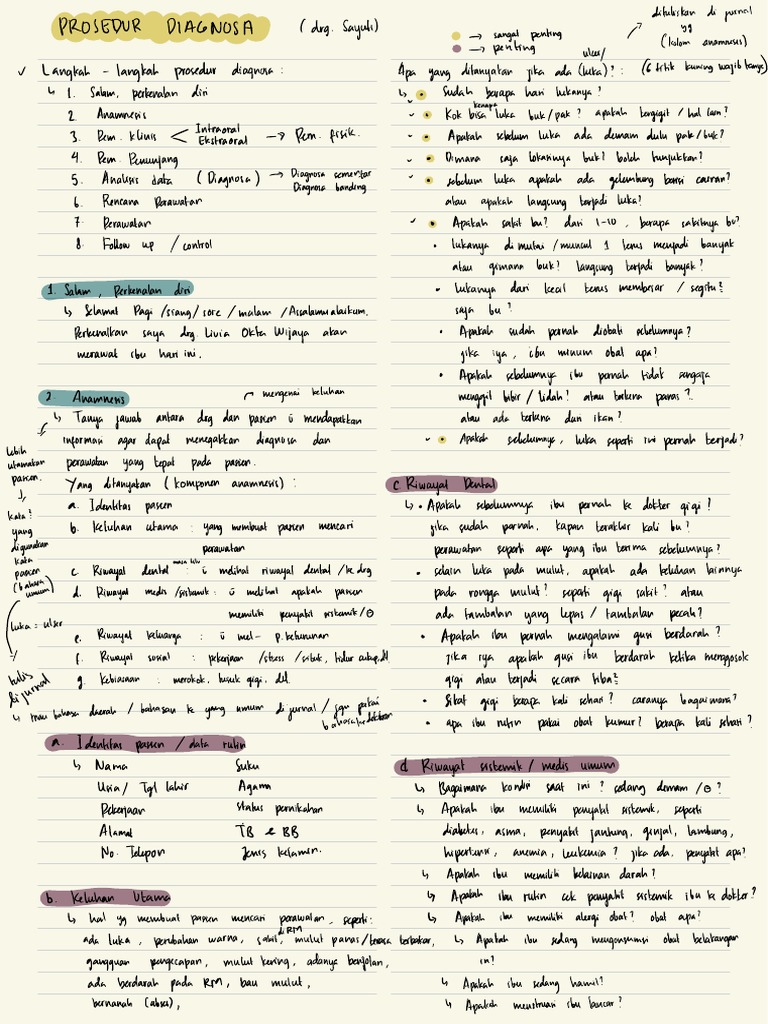 PROSEDUR DIAGNOSA (drg. Sayuti)
→ sangat penting
→ penting
dituliskan di jurnal
yg
(kolom anamnesis)
✓ Langkah - langkah prosedur diagnosa :
↳ 1. Salam, perkenalan diri
2. Anamnesis
3. Pem. klinis < Intraoral → Pem. fisik.
Ekstraoral
4. Pem. Penunjang
5. Analisis data (Diagnosa) → Diagnosa sementar
Diagnosa banding
6. Rencana Perawatan
7. Perawatan
8. Follow up / control
1. Salam, Perkenalan diri
↳ Selamat Pagi /siang/ sore / malam /Assalamualaikum.
Perkenalkan saya drg. Livia Okta Wijaya akan
merawat ibu hari ini.
2. Anamnesis
mengenai keluhan
↳ Tanya jawab antara drg dan pasien ü mendapatkan
informasi agar dapat menegakkan diagnosa dan
perawatan yang tepat pada pasien.
lebih
utamakan
pasien.
↓
kata²
yang
digunakan
kata
pasien
(bahasa
umum)
luka = ulser
tulis
di jurnal
Yang ditanyakan (komponen anamnesis) :
a. Identitas pasien
b. Keluhan utama : yang membuat pasien mencari
perawatan
c. Riwayat dental masa lalu : ü melihat riwayat dental /ke drg
d. Riwayat medis /sistemik : ü melihat apakah pasien
memiliki penyakit sistemik/⊖
e. Riwayat keluarga : ü mel- p. keturunan
f. Riwayat sosial : pekerjaan /stress / sibuk, tidur cukup, dll
g. Kebiasaan : merokok, tusuk gigi, dll
↳ bahasa daerah / bahasan ke yang umum di jurnal / jgn pakai
bahasa kedokteran
a. Identitas pasien / data rutin
↳ Nama Suku
Usia / Tgl lahir Agama
Pekerjaan Status pernikahan
Alamat TB & BB
No. Telepon Jenis kelamin.
b. Keluhan Utama
↳ hal yg membuat pasien mencari perawatan, seperti:
ada luka, perubahan warna, sakit, di RM mulut panas/terasa terbakar,
gangguan pengecapan, mulut kering, adanya benjolan,
ada berdarah pada RM, bau mulut,
bernanah (abses),
Apa yang ditanyakan jika ada (luka)? ulser/ : (6 titik kuning wajib tanya)
↳ • Sudah berapa hari lukanya?
✓ • Kok bisa kenapa luka buk/pak? apakah tergigit / hal lain?
✓ • Apakah sebelum luka ada demam dulu pak/buk?
✓ • Dimana saja lokasinya buk? boleh tunjukkan?
✓ • sebelum luka apakah ada gelembung berisi cairan?
atau apakah langsung terjadi luka?
✓ • Apakah sakit bu? dari 1-10, berapa sakitnya bu?
• lukanya dimulai /muncul 1 terus menjadi banyak
atau gimana buk? langsung terjadi banyak?
• lukanya dari kecil terus membesar / segitu²
saja bu?
• Apakah sudah pernah diobati sebelumnya?
jika iya, ibu minum obat apa?
• Apakah sebelumnya ibu pernah tidak sengaja
menggigit bibir / lidah? atau terkena panas?
atau ada terkena duri ikan?
✓ • Apakah sebelumnya, luka seperti ini pernah terjadi?
c Riwayat Dental
↳ • Apakah sebelumnya ibu pernah ke dokter gigi?
jika sudah pernah, kapan terakhir kali bu?
perawatan seperti apa yang ibu terima sebelumnya?
• selain luka pada mulut, apakah ada keluhan lainnya
pada rongga mulut? seperti gigi sakit? atau
ada tambalan yang lepas / tambalan pecah?
• Apakah ibu pernah mengalami gusi berdarah?
jika iya apakah gusi ibu berdarah ketika menggosok
gigi atau terjadi secara tiba²
• Sikat gigi berapa kali sehari? caranya bagaimana?
• apa ibu rutin pakai obat kumur? berapa kali sehari?
d Riwayat sistemik / medis umum
↳ Bagaimana kondisi saat ini? sedang demam /⊖?
↳ Apakah ibu memiliki penyakit sistemik, seperti
diabetes, asma, penyakit jantung, ginjal, lambung,
hipertensi, anemia, leukemia? jika ada, penyakit apa?
↳ Apakah ibu memiliki kelainan darah?
↳ Apakah ibu rutin cek penyakit sistemik ibu ke dokter?
↳ Apakah ibu memiliki alergi obat? obat apa?
↳ Apakah ibu sedang mengonsumsi obat belakangan
ini?
↳ Apakah ibu sedang hamil?
↳ Apakah menstruasi ibu lancar?